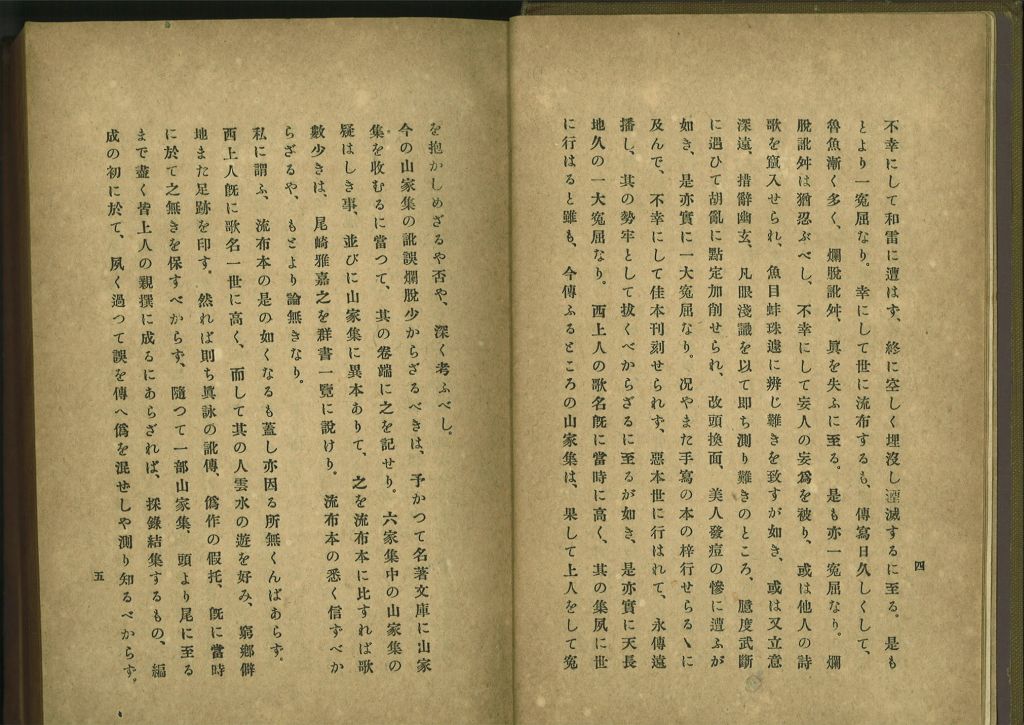 不幸にして和雷に遭はず、終に空しく埋沒し湮滅するに至る。是も
とより一寃屈なり。幸にして世に流布するも、傳寫日久しくして、
魯魚漸く多く、爛脫訛舛、眞を失ふに至る。是も亦一寃屈なり。爛
脫訛舛は猶忍ぶべし、不幸にして妄人の妄爲を被り、或は他人の詩
歌を竄入せられ、魚目蚌珠遽に辨じ難きを致すが如き、或は又立意
深遠、措辭幽玄、凡眼淺識を以て即ち測り難きのところ、臆度武斷
に遇ひて胡亂に點定加削せられ、改頭換面、美人發痘の慘に遭ふが
如き、是亦實に一大寃屈なり。况やまた手寫の本の梓行せらるゝに
及んで、不幸にして佳本刊刻せられず、惡本世に行はれて、永傳遠
播し、其の勢牢として拔くべからざるに至るが如き、是亦實に天長
地久の一大寃屈なり。西上人の歌名旣に當時に高く、其の集夙に世
に行はると雖も、今傳ふるところの山家集は、果して上人をして寃
四
を抱かしめざるや否や、深く考ふべし。
今の山家集の訛誤爛脫少からざるべきは、予かつて名著文庫に山家
集を收むるに當つて、其の卷端に之を記せり。六家集中の山家集の
疑はしき事、並びに山家集に異本ありて、之を流布本に比すれば歌
數少きは、尾崎雅嘉之を群書一覽に說けり。流布本の悉く信ずべか
らざるや、もとより論無きなり。
私に謂ふ、流布本の是の如くなるも蓋し亦因る所無くんばあらず。
西上人旣に歌名一世に高く、而して其の人雲水の遊を好み、窮鄉僻
地また足跡を印す。然れば則ち眞詠の訛傳、僞作の假托、旣に當時
に於て之無きを保すべからず、隨つて一部山家集、頭より尾に至る
まで盡く皆上人の親撰に成るにあらざれば、採錄結集するもの、編
成の初に於て、夙く過つて誤を傳へ僞を混ぜしや測り知るべからず。
五